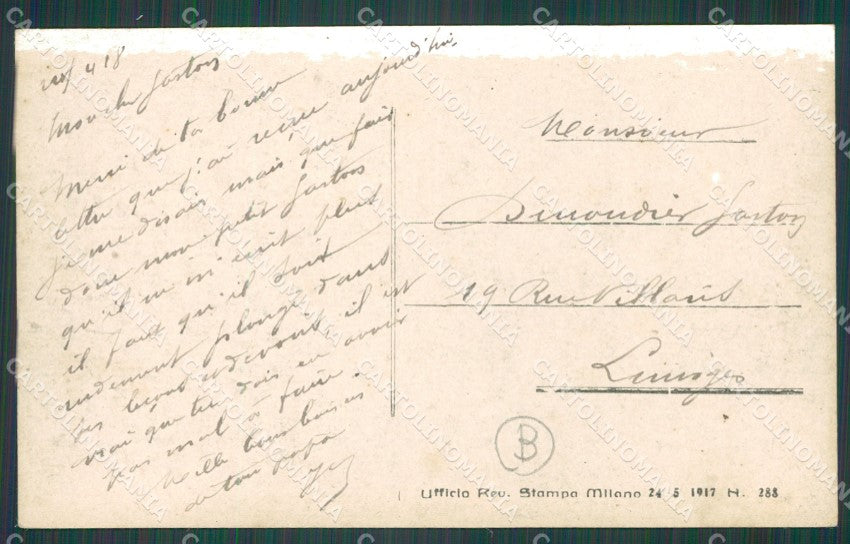 4 18
Mon cher Gaston
Merci de ta bonne
lettre que j'ai reçue aujourd'hui
je me disais mais que fait
donc mon petit Gaston
qu'il ne m'écrit plus
il faut qu'il soit
rudement plongé dans
les leçons devoirs il est
vrai que tu dois en avoir
pas mal à faire
Mille bons baisers
de ton papa
Monsieur
Gaston
19 Rue Villaris
Limoges
B
Ufficio Rev. Stampa Milano 24 5 1917 N. 288
CARTOLINOMANIA